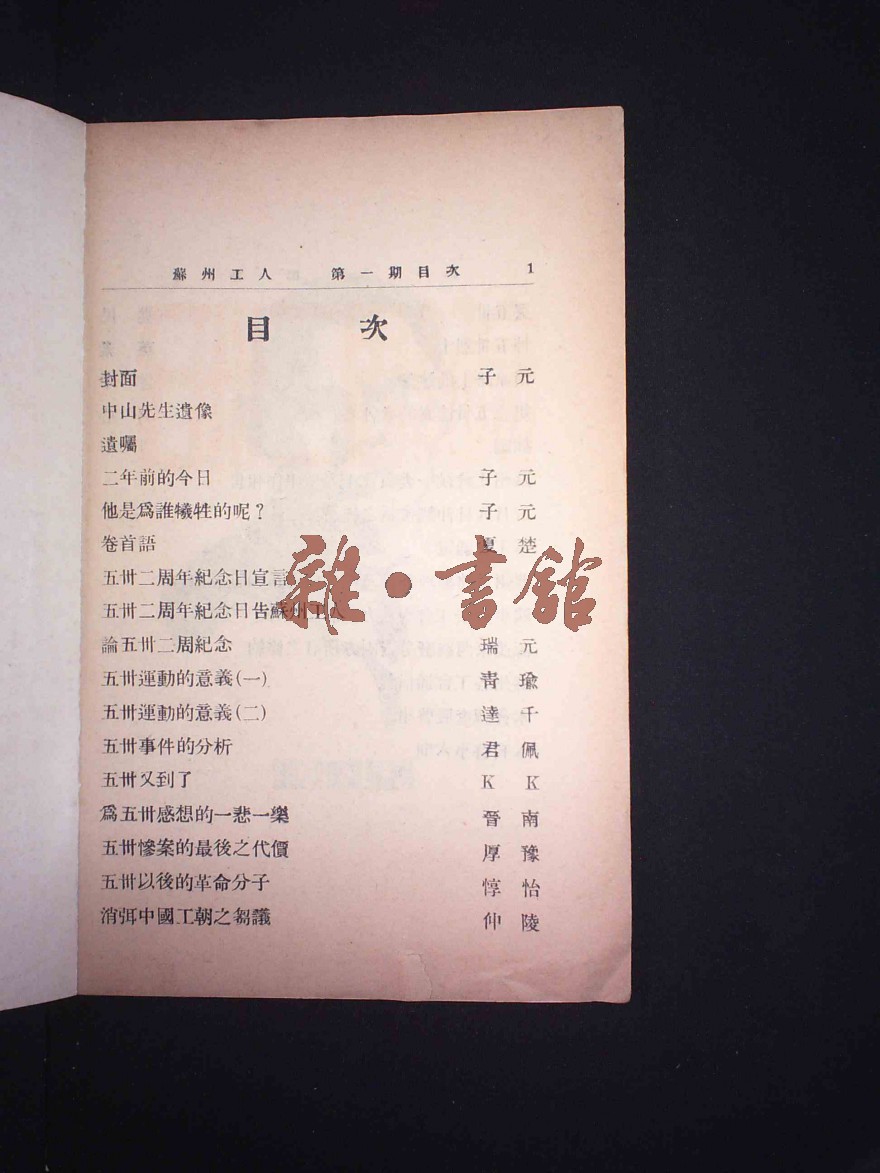 蘇州工人 第一期目次 1
目次
封面 子元
中山先生遺像
遺囑
二年前的今日 子元
他是爲誰犧牲的呢？ 子元
卷首語 夏楚
五卅二周年紀念日宣言
五卅二周年紀念日告蘇州工人
論五卅二周紀念 瑞元
五卅運動的意義(一) 青瑜
五卅運動的意義(二) 達千
五卅事件的分析 君佩
五卅又到了 K K
爲五卅感想的一悲一樂 晉南
五卅慘案的最後之代價 厚豫
五卅以後的革命分子 惇怡
消弭中國工朝之芻議 仲陵
雜·書館